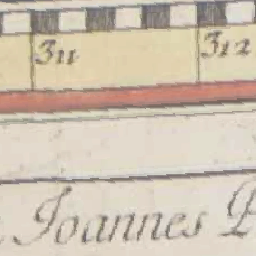 311 312
Joannes